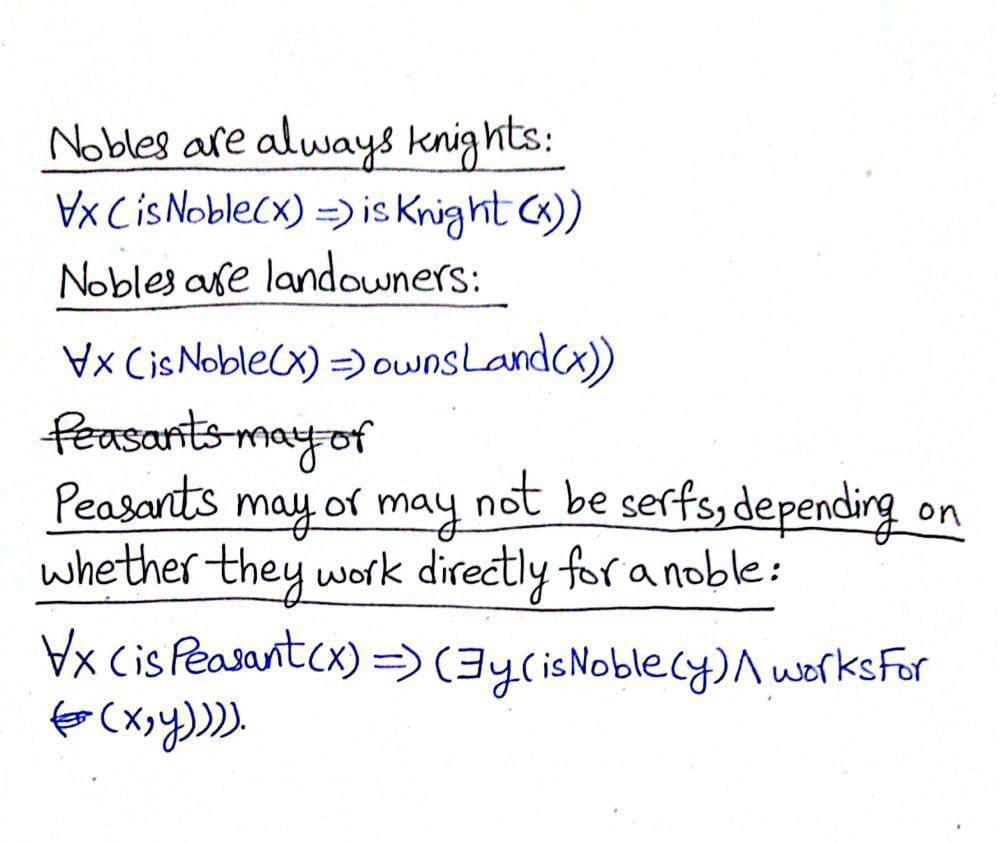 Nobles are always knights:
∀x (isNoble(x) => isKnight (x))
Nobles are landowners:
∀x (isNoble(x) => ownsLand(x))
Peasants may or
Peasants may or may not be serfs, depending on
whether they work directly for a noble:
∀x (isPeasant(x) => (∃y(isNoble(y) ∧ worksFor
(x,y)))).